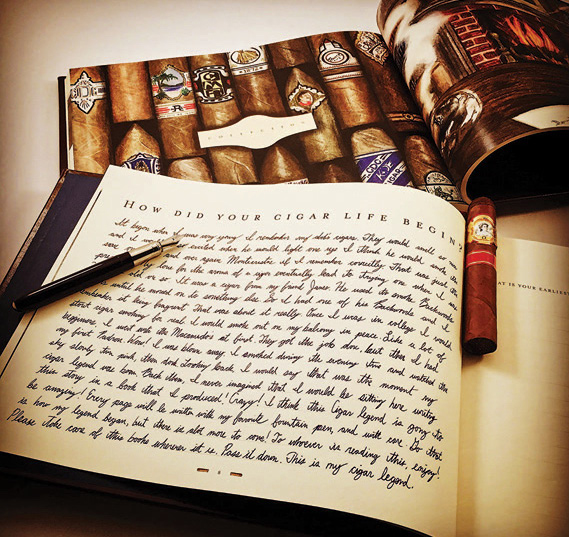 COLLECTIONS
HOW DID YOUR CIGAR LIFE BEGIN?
AT IS YOUR EARLIEST
It began when I was very young. I remember my dad's cigars. They would smell so
and it would excited when he would light one up. I think he would smoke
over and over again. Montecristo if I remember correctly. That was just the
my love for the aroma of a cigar eventually lead to trying one when I
or so. It was a cigar from my friend James. He used to smoke Backwoods
until he moved on to something else. So I had one of his Backwoods and I
remember it being fragrant. That was about it really. Once I was in college I would
start cigar smoking for real. I would smoke out on my balcony in peace. Like a lot of
beginners, I went onto the Macanudos at first. They got the job done, but then I had
my first Padron. Wow! I was blown away. I smoked during the evening time and watched the
sky slowly turn pink, then dark. Looking back, I would say that was the moment my
cigar legend was born. Back then, I never imagined that I would be sitting here writing
this story in a book that I produced! Crazy! I think this Cigar legend is going to
be amazing! Every page will be written with my favorite fountain pen, and with care. So that
is how my legend began, but there is still more to come! To whoever is reading this, enjoy!
Please take care of this book wherever it is. Pass it down. This is my cigar legend.